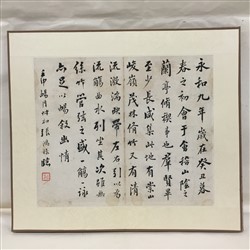 永和九年歲在癸丑暮
春之初會于會稽山陰之
蘭亭脩稧事也羣賢畢
至少長咸集此地有崇山
峻嶺茂林脩竹又有清
流激湍暎帶左右引以為
流觴曲水列坐其次雖無
絲竹管弦之盛一觴一詠
亦足以暢叙幽情